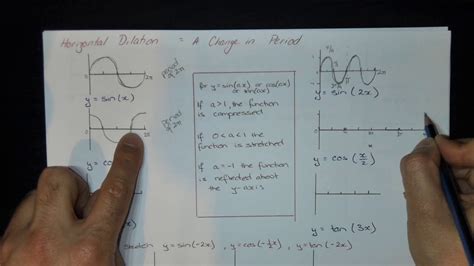 Horizontal Dilation = A Change in Period
period of 2π
2π
y=sin(x)
period of 2π
2π
y=cos
for y=sin(ax) or cos(ax)
If a>1, the function
is compressed
If 0<a<1 the
function is stretched
If a=-1 the function
is reflected about
the y-axis
2π
y=sin(2x)
x
y=cos(x/2)
y=tan(3x)
sketch y=sin(-2x), y=cos(-½x), y=tan(-2x)